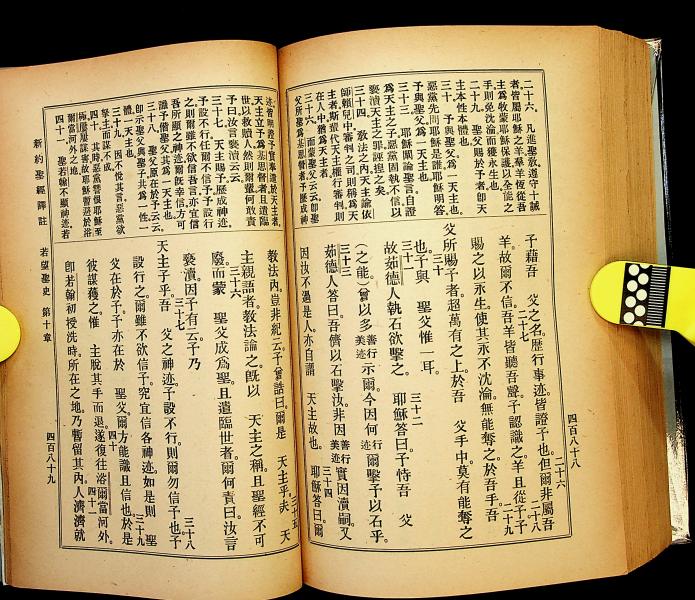 二十六、凡進聖敎遵守十誡
者皆屬耶穌之羊羣羊恆從吾
主爲牧蒙耶穌保護以全能之
手則免沈淪而獲永生也
二十九、聖父賜於予者卽天
主本性本體也
三十、予與聖父爲一天主也
惡黨先問耶穌是誰耶穌明答
予與聖父爲一天主也
三十三、耶穌闡論聖言自證
爲天主之子惡黨固執不信以
褻瀆天主之罪誣捏之矣
三十四、敎法之內天主諭依
師賴兒中審判之司則稱爲天
主者斯輩代天主權行審判則
在人中猶爲天主
三十六、而蒙聖父云云卽聖
父所聖爲基恩督者予歷成神
予藉吾 父之名歷行事迹皆證予也但爾非屬吾二十六
羊故爾不信二十七吾羊皆聽吾聲予認識之羊且從予二十八予
賜之以永生使其永不沈淪無能奪之於吾手二十九吾
父所賜予者超萬有之上於吾 父手中莫有能奪之
也三十予與 聖父惟一耳
三十一故茹德人執石欲擊之三十二耶穌答曰予恃吾 父
（之能）曾以多善行美迹示爾今因何行迹爾擊予以石乎
三十三茹德人答曰吾儕以石擊汝非因善行美迹實因瀆嗣又
因汝不過是人亦自謂 天主故也三十四耶穌答曰爾
四百八十八
迹皆明證予實奉遣於天主者
天主立予爲基恩督者且遣臨
世以救贖人然則爾輩何敢責
予曰汝言褻瀆云云
三十七、天主賜予歷成神迹
予設不行任爾不信予予設行
之則爾雖不欲信吾言亦宜信
吾所顯之神迹爾旣幸信方可
識予偕聖父其爲一天主也
三十八、聖父原在於予云云
卽示聖父與聖子共爲一性一
體一天主也
三十九、因不悅其言惡黨欲
拏主而謀不成
四十、其時惡黨營恨耶穌至
極屢屢謀害故耶穌暫居於浴
爾當河外之地
四十一、聖若翰不顯神迹若
敎法內豈非紀云予曾諭曰爾是 天主乎三十五決 天
主親語者敎法論之旣以 天主之稱且聖經不可
廢三十六而蒙 聖父成爲聖且遣臨世者爾何責曰汝言
褻瀆因予有云予乃
天主子乎三十七吾 父之神迹予設不行則爾勿信予也三十八予
設行之爾雖不欲信予究宜信各神迹如是則 聖
父在於予予亦在於 聖父爾方能識且信也三十九於是
彼謀獲之惟 主脫其手而退四十遂復往浴爾當河外
卽若翰初授洗時所在之地乃暫留其內四十一人濟濟就
新約聖經譯註 若望聖史 第十章
四百八十九